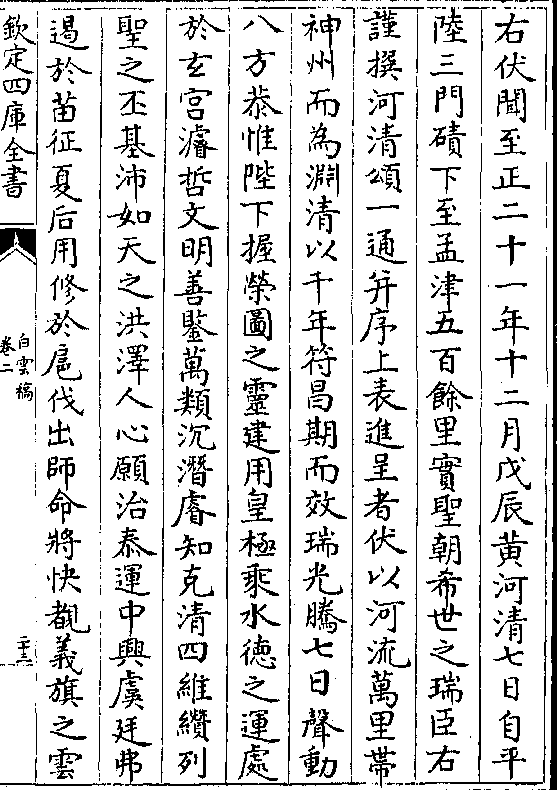 右伏聞至正二十一年十二月戊辰黄河清七日自平
陸三門磧下至孟津五百餘里實聖朝希世之瑞臣右
謹撰河清頌一通并序上表進呈者伏以河流萬里帶
神州而為淵清以千年符昌期而效瑞光騰七日聲動
八方恭惟陛下握榮圖之靈建用皇極乘水德之運處
於玄宫濬哲文明善鑒萬類沉潛睿知克清四維纘列
聖之丕基沛如天之洪澤人心願治泰運中興虞廷弗
遏於苗征夏后用修於扈伐出師命將快覩義旗之雲
欽定四庫全書
白雲稿
卷二
二十三